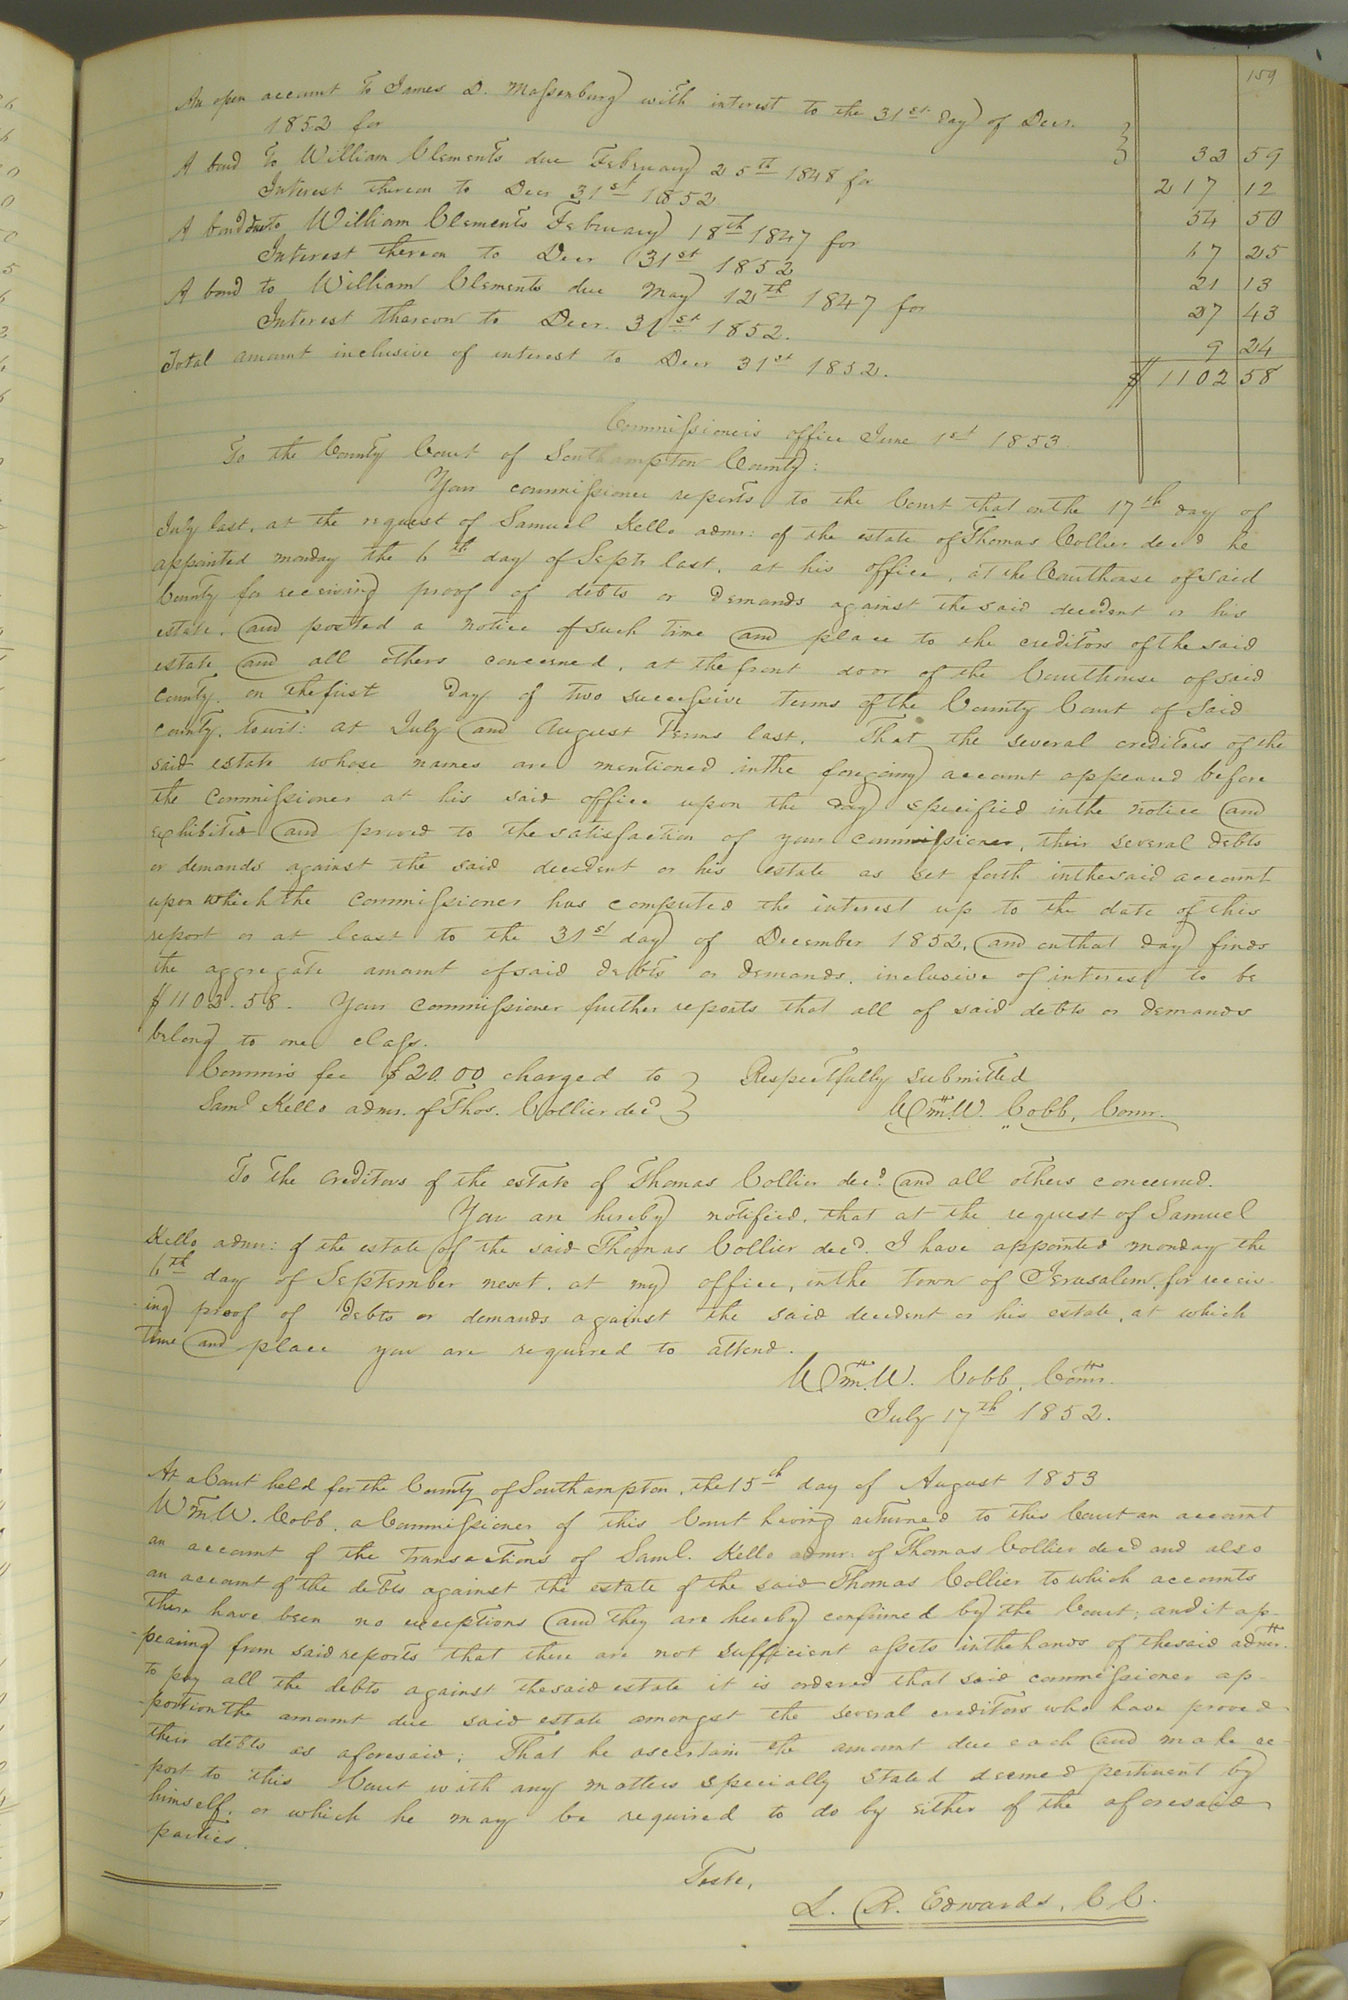 159
An open account to James D. Massenburg with interest to the 31st day of Decr.
1852 for 33 59
A bond to William Clements due February 25th 1848 for 217 12
Interest thereon to Decr 31st 1852 54 50
A bond due to William Clements February 18th 1847 for 67 25
Interest thereon to Decr 31st 1852 21 13
A bond to William Clements due May 12th 1847 for 27 43
Interest thereon to Decr. 31st 1852. 9 24
Total amount inclusive of interest to Decr 31st 1852. $ 1102 58
Commissioner's office June 1st 1853
To the County Court of Southampton County:
Your commissioner reports to the Court that on the 17th day of
July last, at the request of Samuel Kello admr: of the estate of Thomas Collier decd he
appointed monday the 6th day of Septr last, at his office, at the Courthouse of said
County for receiving proof of debts or demands against the said decedent or his
estate, and posted a notice of such time and place to the creditors of the said
estate and all others concerned, at the front door of the Courthouse of said
County, on the first day of two successive terms of the County Court of said
County, towit: at July and August Terms last. That the several creditors of the
said estate whose names are mentioned in the foregoing account appeared before
the commissioner at his said office upon the day specified in the notice and
exhibited and proved to the satisfaction of your commissioner, their several debts
or demands against the said decedent or his estate as set forth in the said account
upon which the commissioner has computed the interest up to the date of this
report or at least to the 31st day of December 1852, and on that day finds
the aggregate amount of said debts or demands, inclusive of interest to be
$1102.58. Your commissioner further reports that all of said debts or demands
belong to one class.
Commr's fee $20.00 charged to } Respectfully submitted
Saml Kello admr. of Thos. Collier decd } Wm. W. Cobb, Comr.
To the creditors of the estate of Thomas Collier decd. and all others concerned.
You are hereby notified, that at the request of Samuel
Kello admr: of the estate of the said Thomas Collier decd. I have appointed monday the
6th day of September next, at my office, in the town of Jerusalem, for receiv-
-ing proof of debts or demands against the said decedent or his estate, at which
time and place you are required to attend.
Wm. W. Cobb, Comr.
July 17th 1852.
At a Court held for the County of Southampton, the 15th day of August 1853
Wm W. Cobb, a Commissioner of this Court having returned to this Court an account
an account of the transactions of Saml. Kello admr: of Thomas Collier decd and also
an account of the debts against the estate of the said Thomas Collier to which accounts
there have been no exceptions and they are hereby confirmed by the Court; and it ap-
-pearing from said reports that there are not sufficient assets in the hands of the said admr.
to pay all the debts against the said estate it is ordered that said commissioner ap-
-portion the amount due said estate amongst the several creditors who have proved
their debts as aforesaid; That he ascertain the amount due each and make re-
-port to this Court with any matters specially stated deemed pertinent by
himself, or which he may be required to do by either of the aforesaid
parties.
Teste,
L. R. Edwards, C.C.